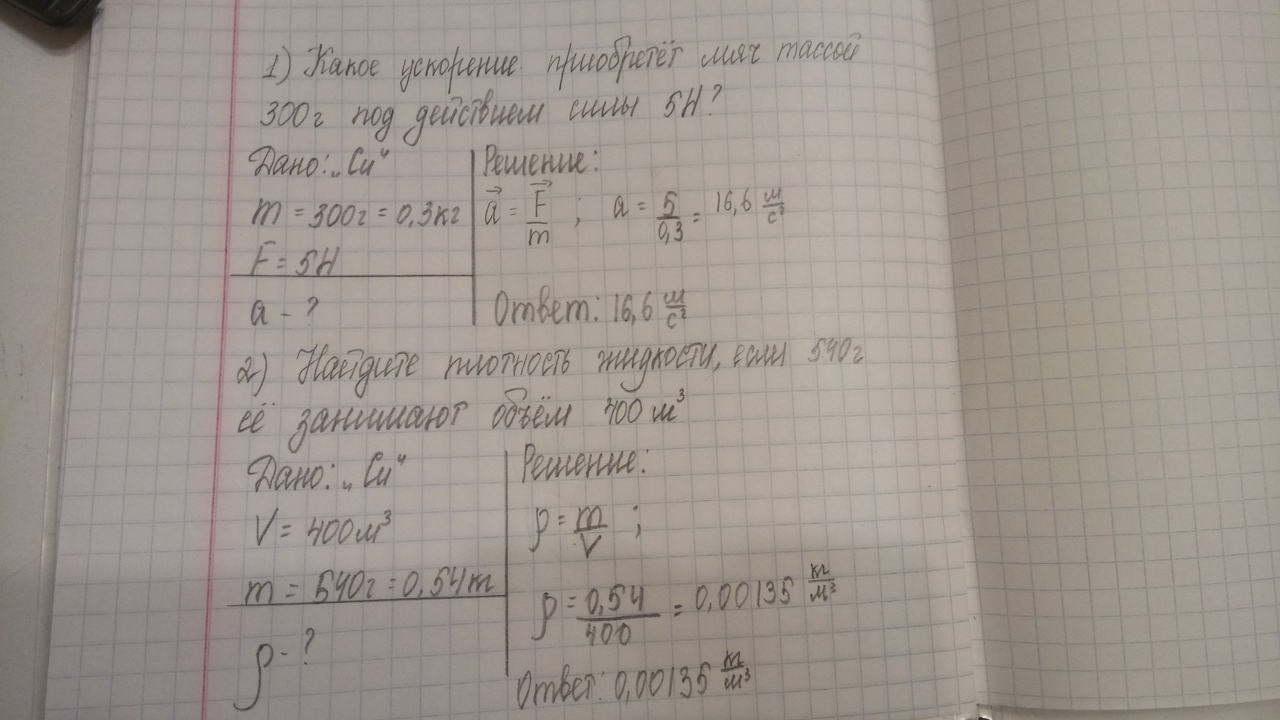 1) Какое ускорение приобретёт мяч массой
300г под действием силы 5Н?
Дано: „Си“
m = 300г = 0,3кг
F = 5Н
a - ?
Решение:
a⃗ = F⃗/m ; a = 5/0,3 = 16,6 м/с²
Ответ: 16,6 м/с²
2) Найдите плотность жидкости, если 540г
её занимают объём 400 м³
Дано: „Си“
V = 400м³
m = 540г = 0,54кг
ρ - ?
Решение:
ρ = m/V ;
ρ = 0,54/400 = 0,00135 кг/м³
Ответ: 0,00135 кг/м³